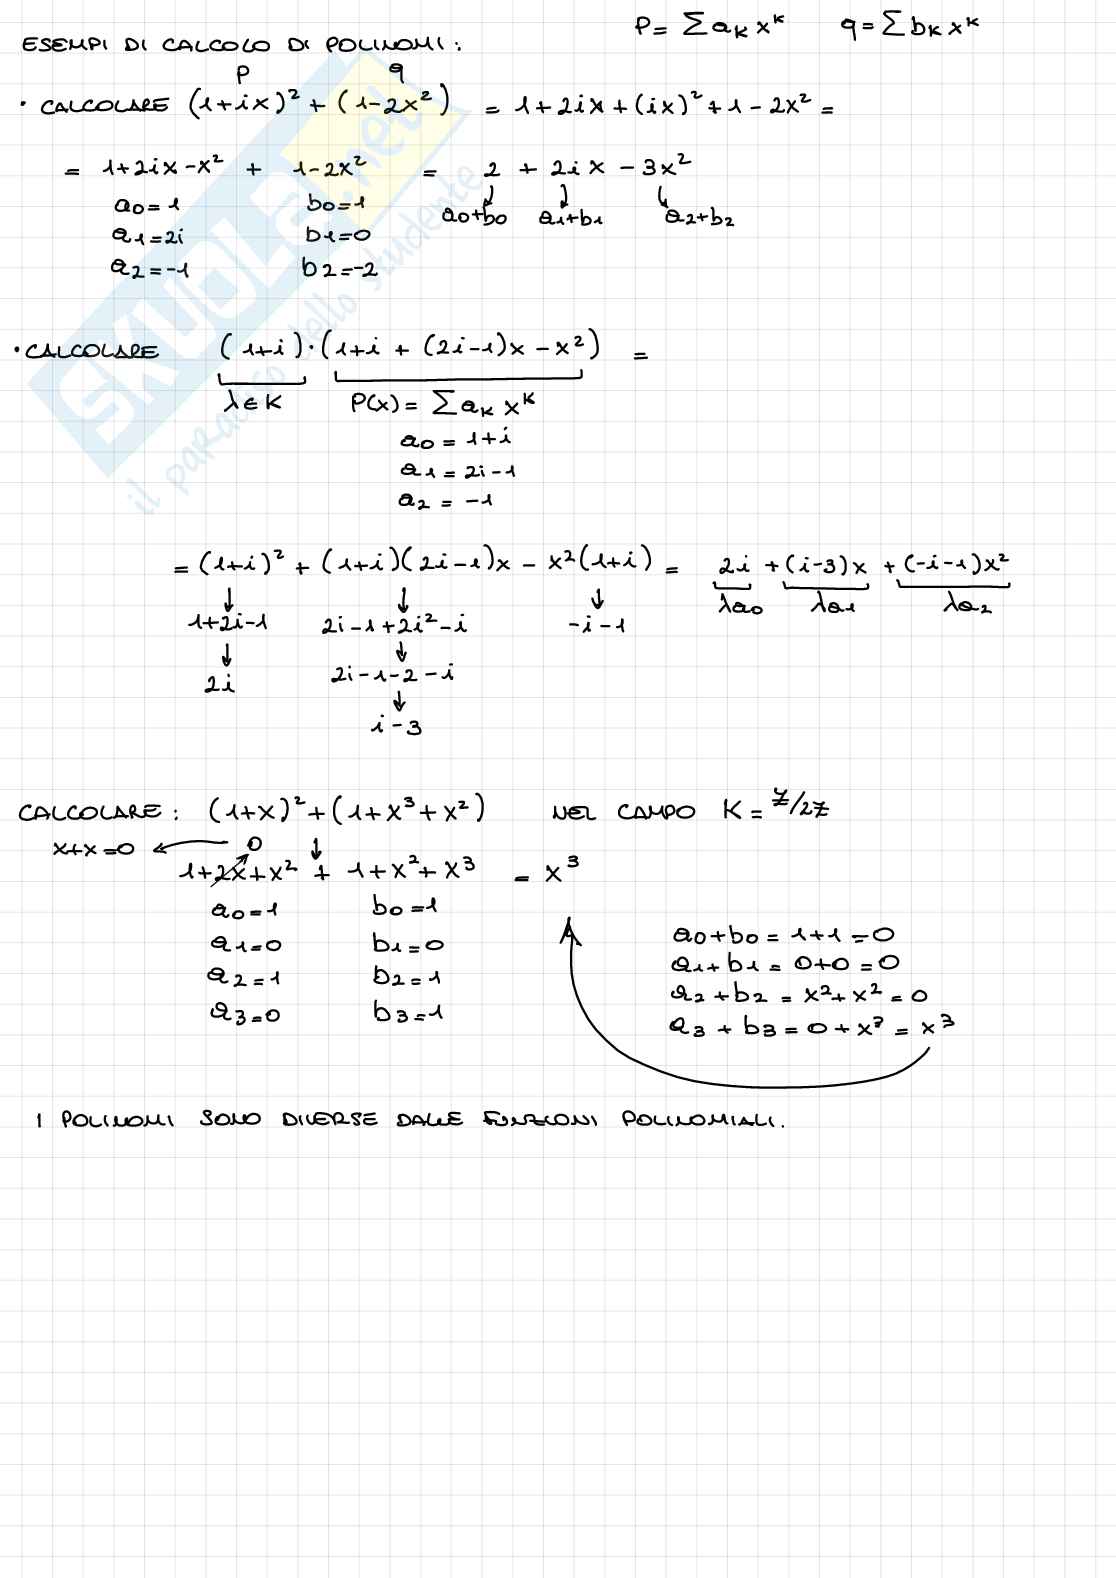 P = ∑ aₖ xᵏ   q = ∑ bₖ xᵏ
ESEMPI DI CALCOLO DI POLINOMI:
P   q
· CALCOLARE (1+ix)² + (1-2x²) = 1+2ix+(ix)²+1-2x² =
= 1+2ix-x² + 1-2x² = 2 + 2ix - 3x²
a₀=1   b₀=1   a₀+b₀   a₁+b₁   a₂+b₂
a₁=2i   b₁=0
a₂=-1   b₂=-2
· CALCOLARE (1+i)·(1+i + (2i-1)x - x²) =
λ∈K   P(x) = ∑ aₖ xᵏ
a₀ = 1+i
a₁ = 2i-1
a₂ = -1
= (1+i)² + (1+i)(2i-1)x - x²(1+i) = 2i + (i-3)x + (-i-1)x²
↓   ↓   ↓   λa₀   λa₁   λa₂
1+2i-1   2i-1+2i²-i   -i-1
↓   ↓
2i   2i-1-2-i
↓
i-3
CALCOLARE: (1+x)² + (1+x³+x²)   NEL CAMPO K = ℤ/2ℤ
x+x=0 ← 0 ↓
1+2x+x² + 1+x²+x³ = x³
a₀=1   b₀=1
a₁=0   b₁=0
a₂=1   b₂=1
a₃=0   b₃=1
a₀+b₀ = 1+1 = 0
a₁+b₁ = 0+0 = 0
a₂+b₂ = x²+x² = 0
a₃+b₃ = 0+x³ = x³
I POLINOMI SONO DIVERSE DALLE FUNZIONI POLINOMIALI.
SKUOLA.net
il paradiso dello studente